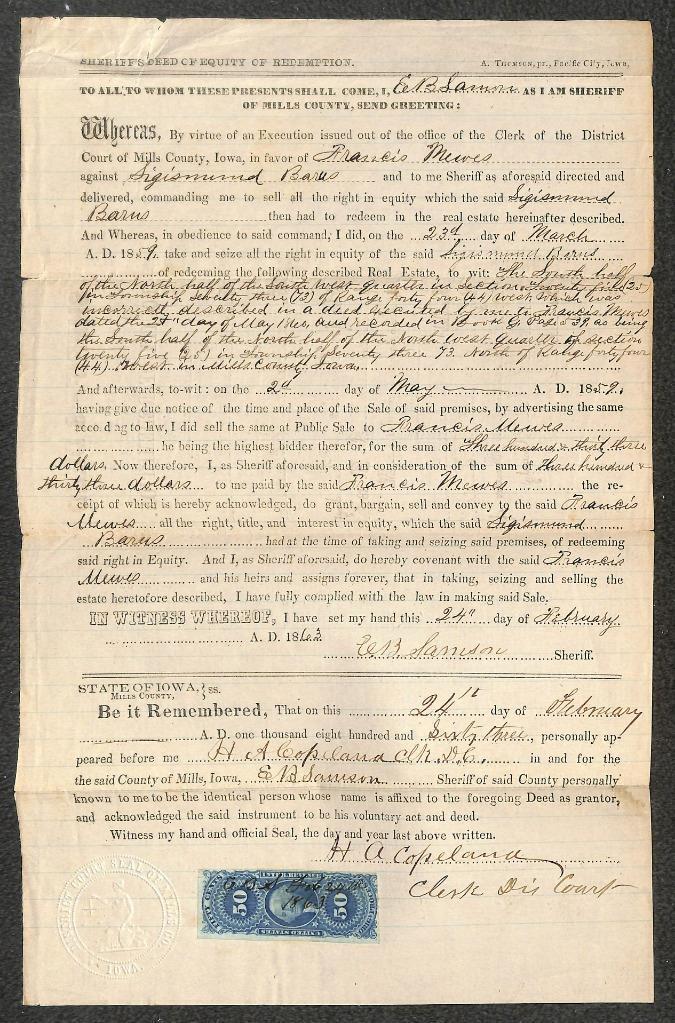 SHERIFF'S DEED OF EQUITY OF REDEMPTION. A. THOMSON, pr., Pacific City, Iowa,
TO ALL TO WHOM THESE PRESENTS SHALL COME, I, E B Samson AS I AM SHERIFF
OF MILLS COUNTY, SEND GREETING:
Whereas, By virtue of an Execution issued out of the office of the Clerk of the District
Court of Mills County, Iowa, in favor of Francis Mewes
against Sigismund Barus and to me Sheriff as aforesaid directed and
delivered, commanding me to sell all the right in equity which the said Sigismund
Barus then had to redeem in the real estate hereinafter described.
And Whereas, in obedience to said command, I did, on the 23d day of March
A. D. 1859. take and seize all the right in equity of the said Sigismund Barus
of redeeming the following described Real Estate, to wit: The South half
of the North half of the South West quarter in section Seventy five (25)
in Township Seventy three (73) of Range forty four (44) west which was
incorrectly described in a deed executed by me to Francis Mewes
dated the day of May 1860, and recorded in Book G Page 539, as being
the South half of the North half of the North West quarter of section
twenty five (25) in Township Seventy three 73. North of Range forty four
(44) West in Mills County Iowa.
And afterwards, to-wit: on the 2d day of May A. D. 1859.
having give due notice of the time and place of the Sale of said premises, by advertising the same
according to law, I did sell the same at Public Sale to Francis Mewes
he being the highest bidder therefor, for the sum of Three hundred & thirty three
dollars. Now therefore, I, as Sheriff aforesaid, and in consideration of the sum of three hundred &
thirty three dollars to me paid by the said Francis Mewes the re-
ceipt of which is hereby acknowledged, do grant, bargain, sell and convey to the said Francis
Mewes all the right, title, and interest in equity, which the said Sigismund
Barus had at the time of taking and seizing said premises, of redeeming
said right in Equity. And I, as Sheriff aforesaid, do hereby covenant with the said Francis
Mewes and his heirs and assigns forever, that in taking, seizing and selling the
estate heretofore described, I have fully complied with the law in making said Sale.
IN WITNESS WHEREOF, I have set my hand this 24" day of February
A. D. 1863
E B Samson Sheriff.
STATE OF IOWA, } ss.
MILLS COUNTY,
Be it Remembered, That on this 24th day of February
A. D. one thousand eight hundred and Sixty three, personally ap-
peared before me H A Copeland Clk. D.C. in and for the
the said County of Mills, Iowa, E B Samson Sheriff of said County personally
known to me to be the identical person whose name is affixed to the foregoing Deed as grantor,
and acknowledged the said instrument to be his voluntary act and deed.
Witness my hand and official Seal, the day and year last above written.
H A Copeland
Clerk Dis Court
50 50
1863
IOWA.